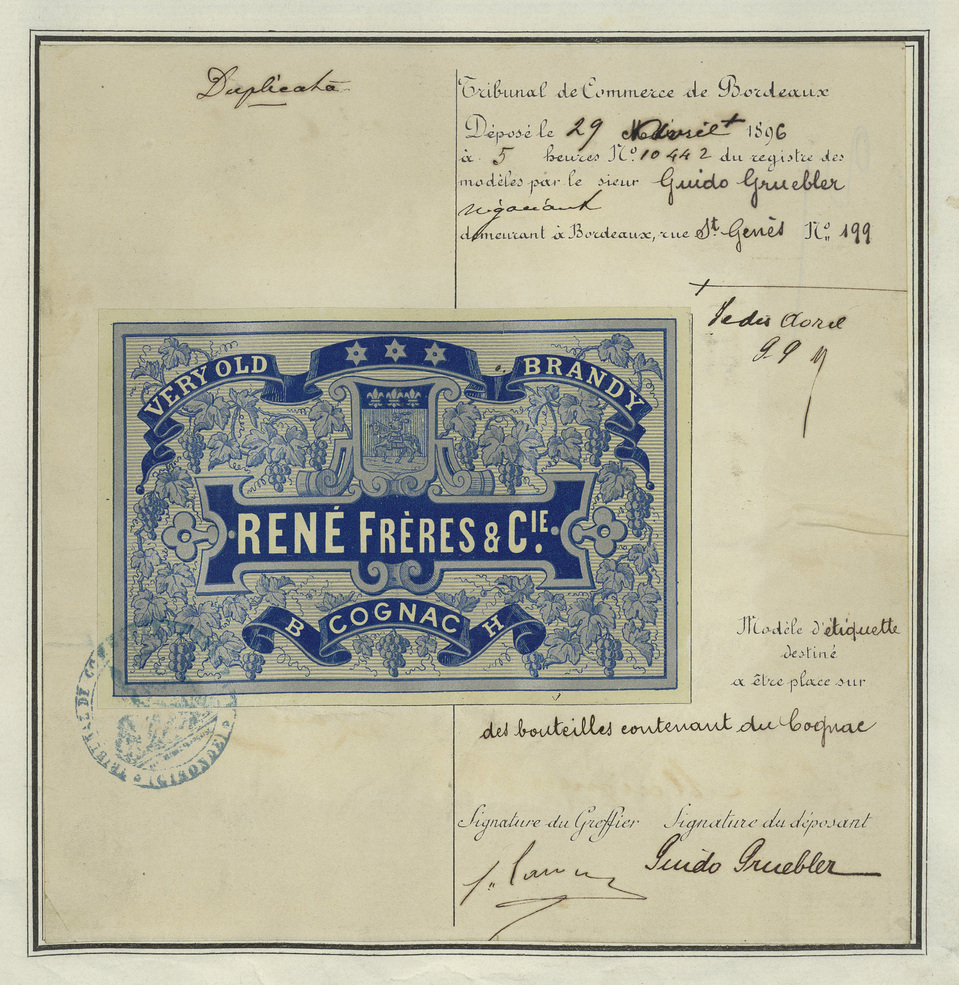 Duplicata
Tribunal de Commerce de Bordeaux
Déposé le 29 Avril 1896
à 5 heures Nº 10442 du registre des
modèles par le sieur Guido Gruebler
négociant
demeurant à Bordeaux, rue St Genès Nº 199
VERY OLD BRANDY
RENÉ FRÈRES & CIE.
B COGNAC H
Modèle d'étiquette
destiné
a être place sur
des bouteilles contenant du Cognac
TRIBUNAL DE COM
(GIRONDE)
Signature du Greffier Signature du déposant
Guido Gruebler